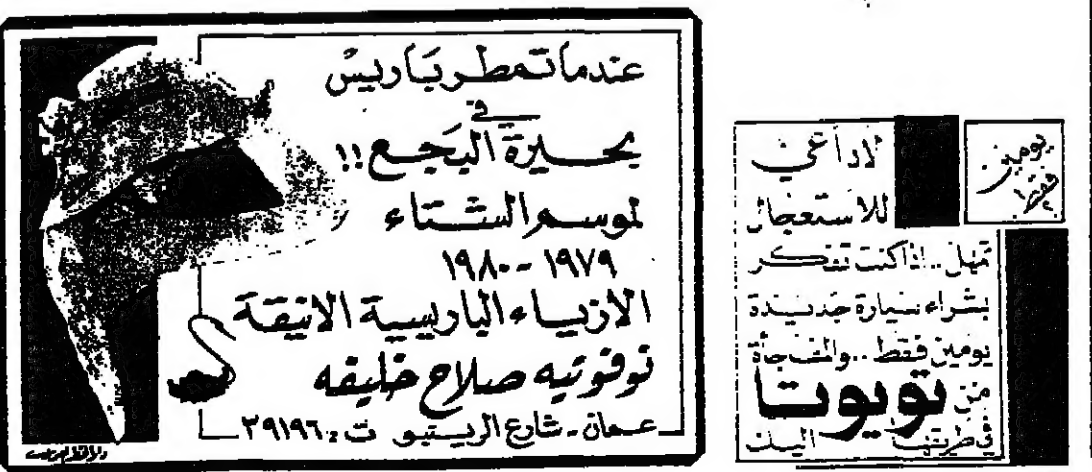 عندما تمطر باريس
في
بحيرة البجع!!
لموسم الشتاء
١٩٧٩ - ١٩٨٠
الازياء الباريسية الانيقة
نوفوتيه صلاح خليفه
عمان - شارع الريستبو ت: ٣٩١٩٦
يومين
فقط!
لا داعي
للاستعجال
تمهل .. اذا كنت تفكر
بشراء سيارة جديدة
يومين فقط .. والمفاجأة
من تويوتا
في طريقها اليك